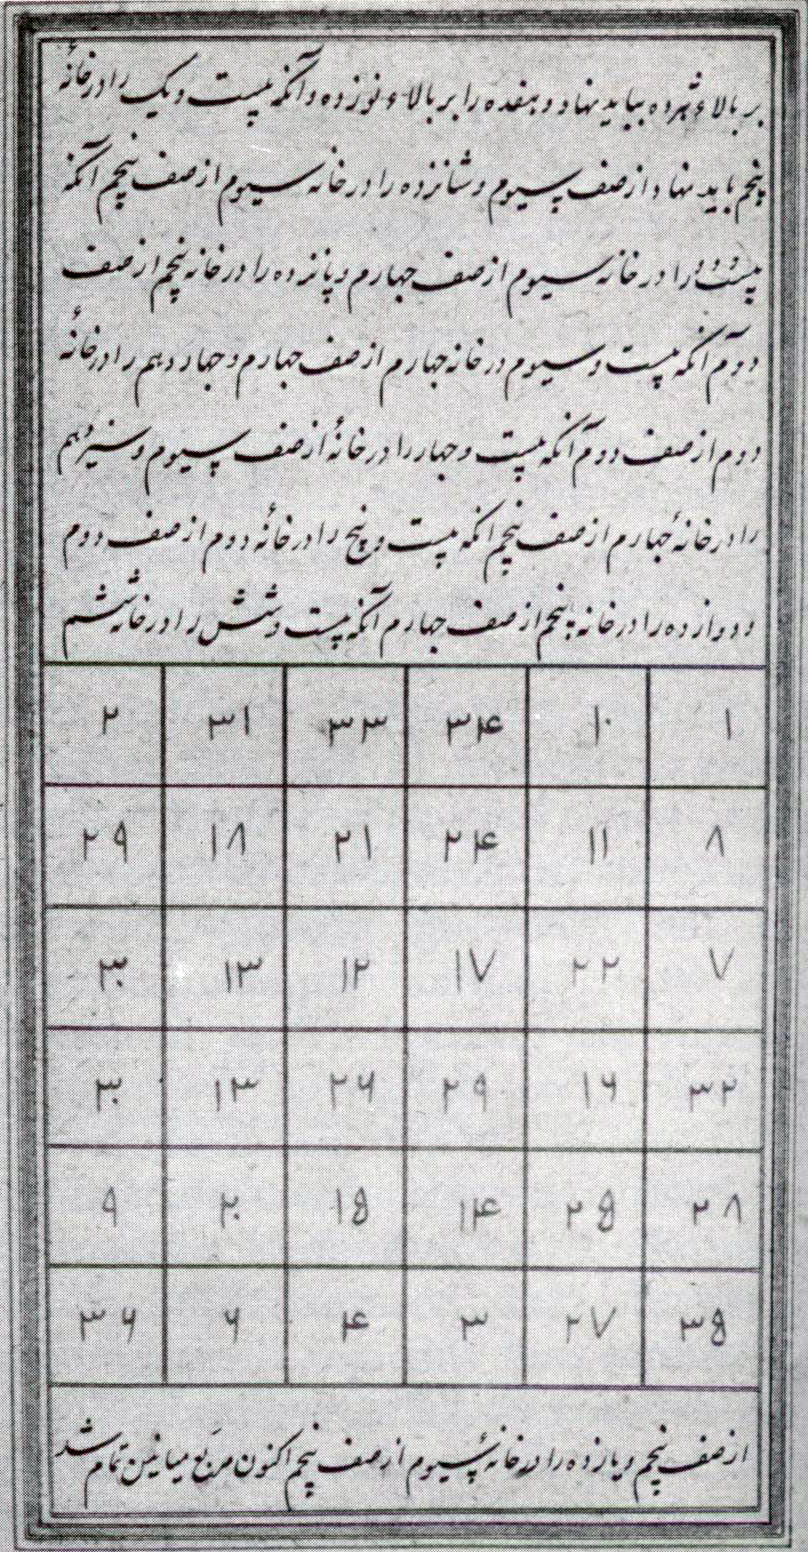 بر بالاء هژده بباید نهاد و هفده را بر بالاء نوزده و آنگه بیست و یک را در خانهٔ
پنجم باید نهاد از صف سیوم و شانزده را در خانه سیوم از صف پنجم آنگه
بیست و دو را در خانه سیوم از صف چهارم و پانزده را در خانه پنجم از صف
دوم آنگه بیست و سیوم در خانه چهارم از صف چهارم و چهاردهم را در خانهٔ
دوم از صف دوم آنگه بیست و چهار را در خانهٔ از صف سیوم و سیزدهم
را در خانهٔ چهارم از صف پنجم آنگه بیست و پنج را در خانهٔ دوم از صف دوم
و دوازده را در خانه پنجم از صف چهارم آنگه بیست و شش را در خانه ششم
۱ ۱۰ ۳۴ ۳۳ ۳۱ ۲
۸ ۱۱ ۲۴ ۲۱ ۱۸ ۲۹
۷ ۲۲ ۱۷ ۱۲ ۱۳ ۳۰
۳۲ ۱۶ ۲۹ ۲۶ ۱۳ ۳۰
۲۸ ۲۵ ۱۴ ۱۵ ۲۰ ۹
۳۵ ۲۷ ۳ ۴ ۶ ۳۶
از صف پنجم و یازده را در خانه سیوم از صف پنجم اکنون مربع میانین تمام شد